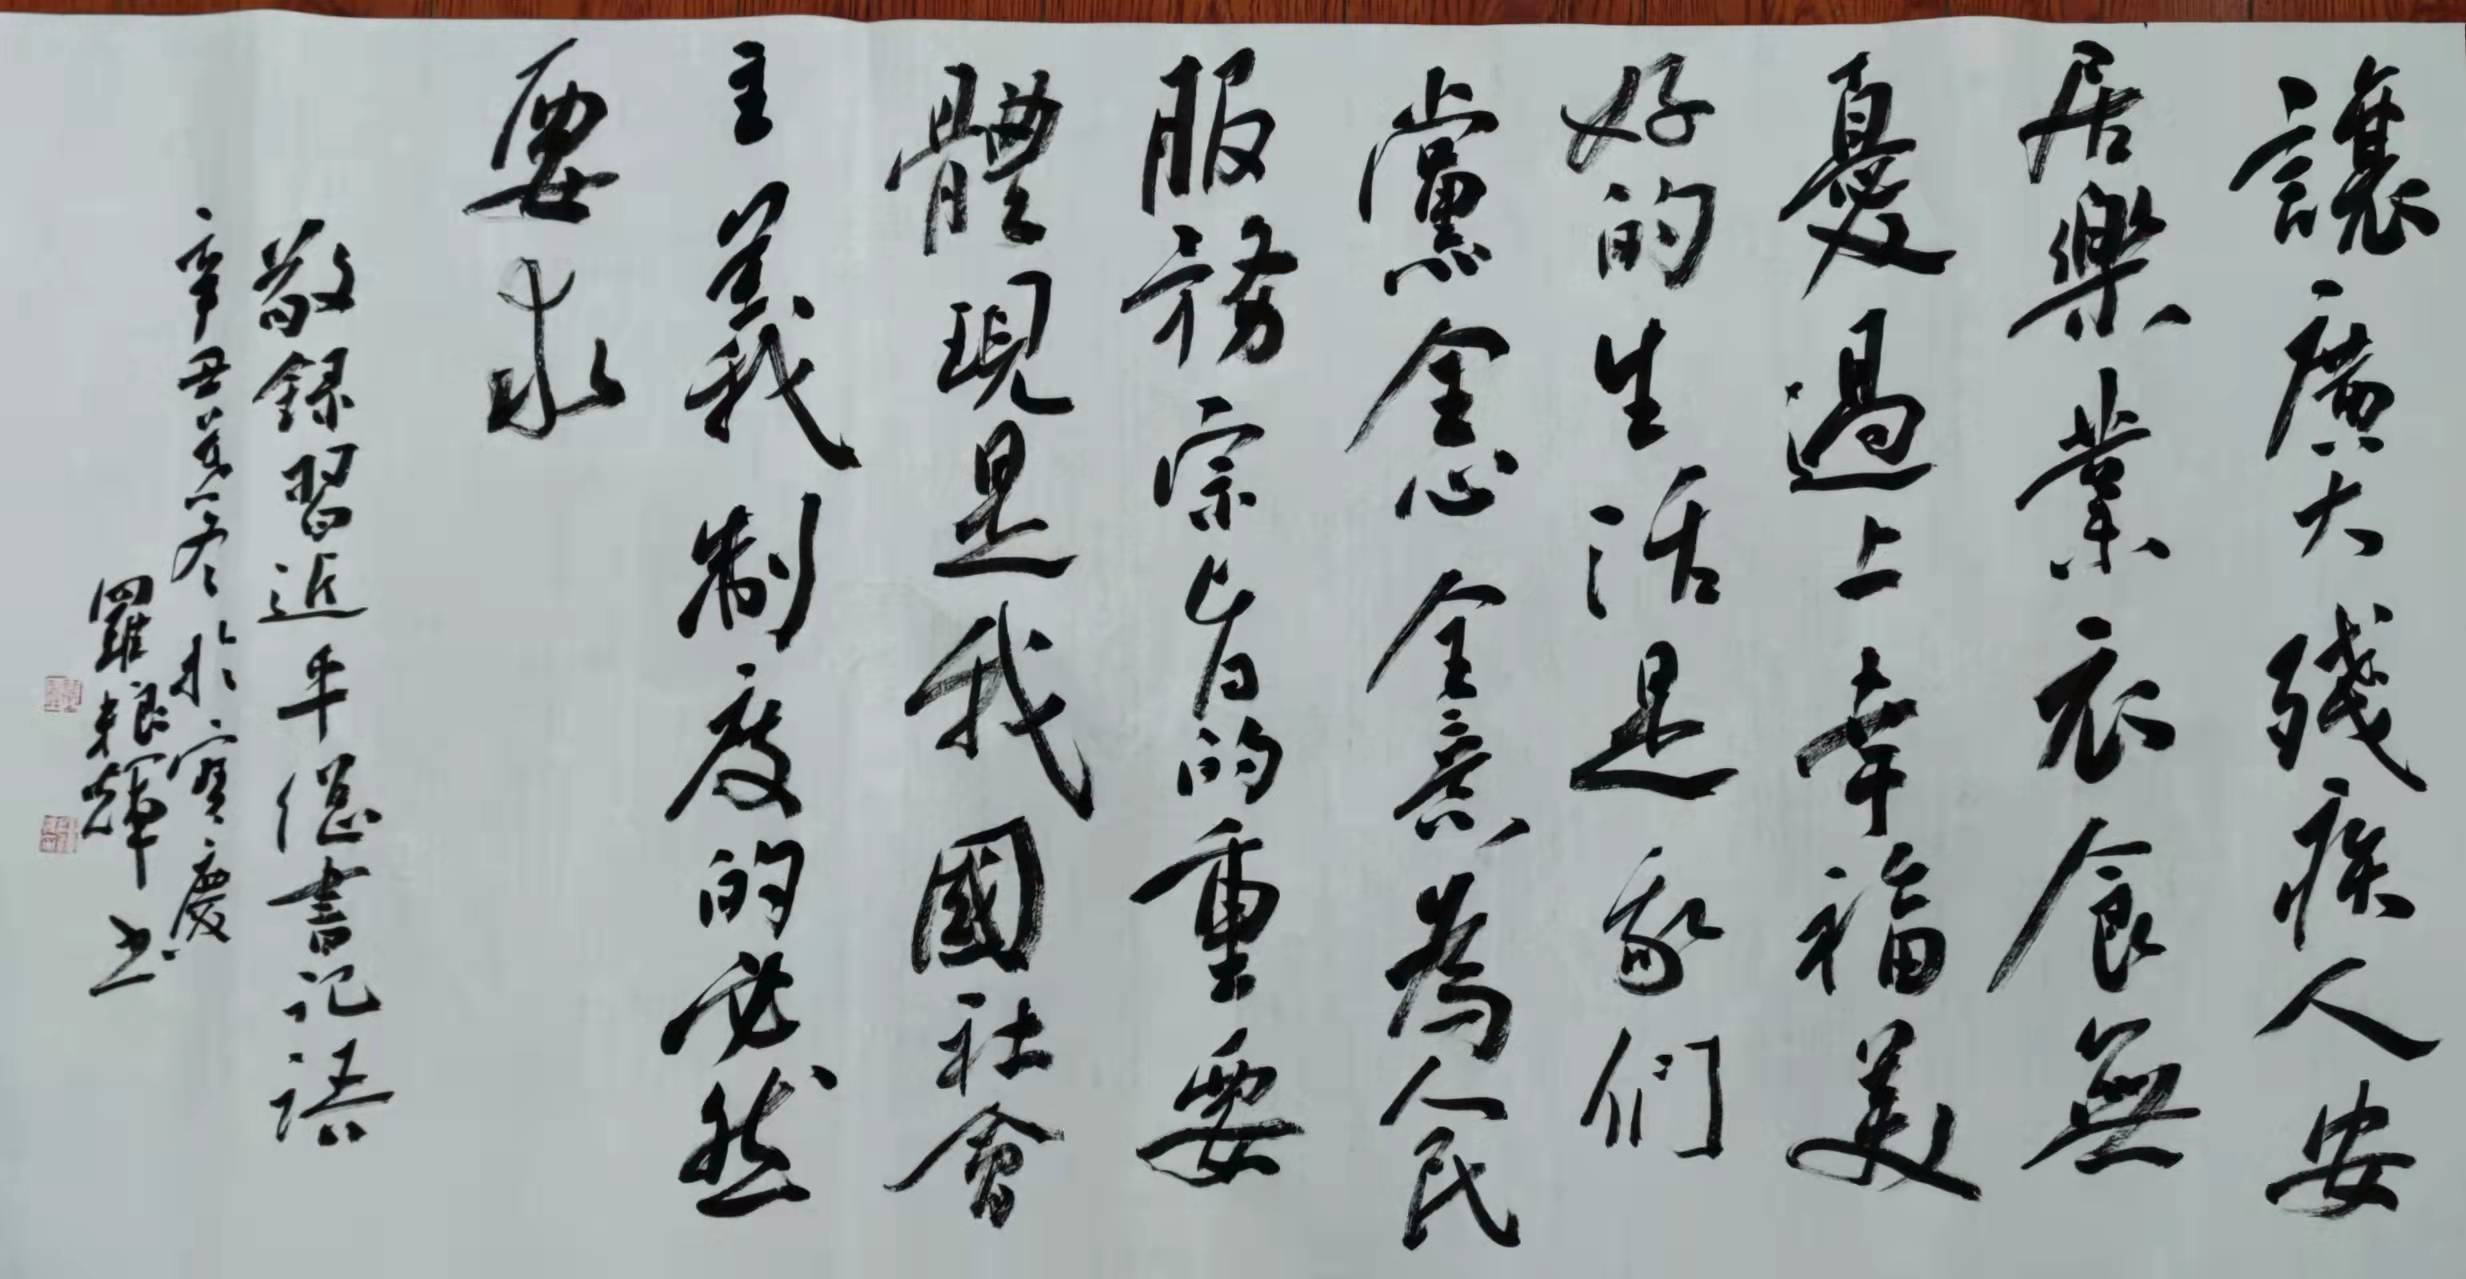 讓廣大殘疾人安
居樂業衣食無
憂過上幸福美
好的生活是我們
黨全心全意為人民
服務宗旨的重要
體現是我國社會
主義制度的必然
要求
敬錄習近平總書記語
辛丑孟冬於寶慶
羅粮輝书